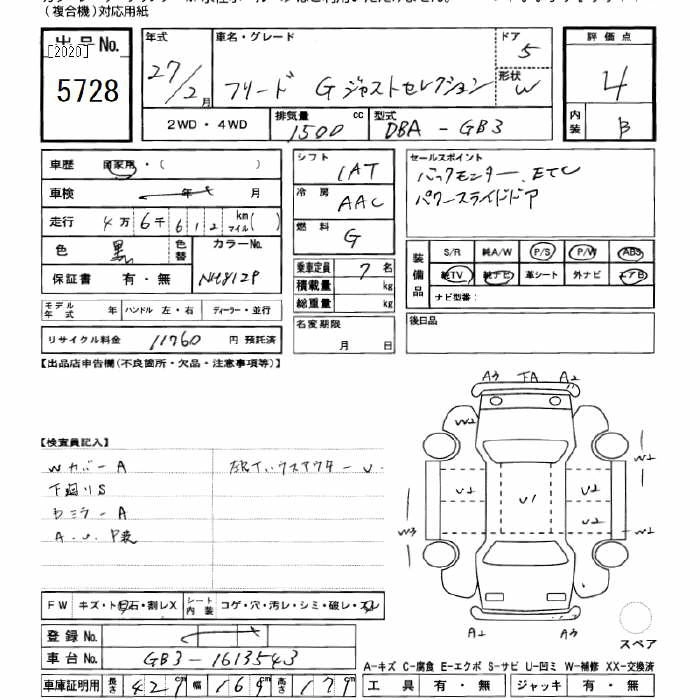 (複合機)対応用紙
出品No.
[2020]
5728
年式 27/2月
車名・グレード フリード G ジャストセレクション
ドア 5
形状 W
評価点 4
内装 B
2WD・4WD
排気量 1500 cc
型式 DBA-GB3
車歴 自家用・( )
車検 年 月
走行 4万6千612 km マイル( )
色 黒
色替
カラーNo. NH812P
保証書 有・無
モデル年式 年 ハンドル 左・右 ディーラー・並行
リサイクル料金 11760 円 預託済
シフト IAT
冷房 AAC
燃料 G
乗車定員 7名
積載量 kg
総重量 kg
名変期限
月 日
セールスポイント
バックモニター、ETC
パワースライドドア
装備品
S/R 純A/W P/S P/W ABS
純TV 純ナビ 革シート 外ナビ エアB
ナビ型番:
後日品
【出品店申告欄(不良箇所・欠品・注意事項等)】
【検査員記入】
Wカバー A
下廻り S
ロミラー A
A.U.P表
A3 FA A2
W2
W2
U2 U1 U2
U2
W3
W2
A2 A2
スペア
FW キズ・ト石・割レX
シート内装 コゲ・穴・汚レ・シミ・破レ・スレ
登録No.
車台No. GB3-1613543
車庫証明用 長さ 427 幅 169 高さ 171
A-キズ C-腐食 E-エクボ S-サビ U-凹ミ W-補修 XX-交換済
工具 有・無 ジャッキ 有・無